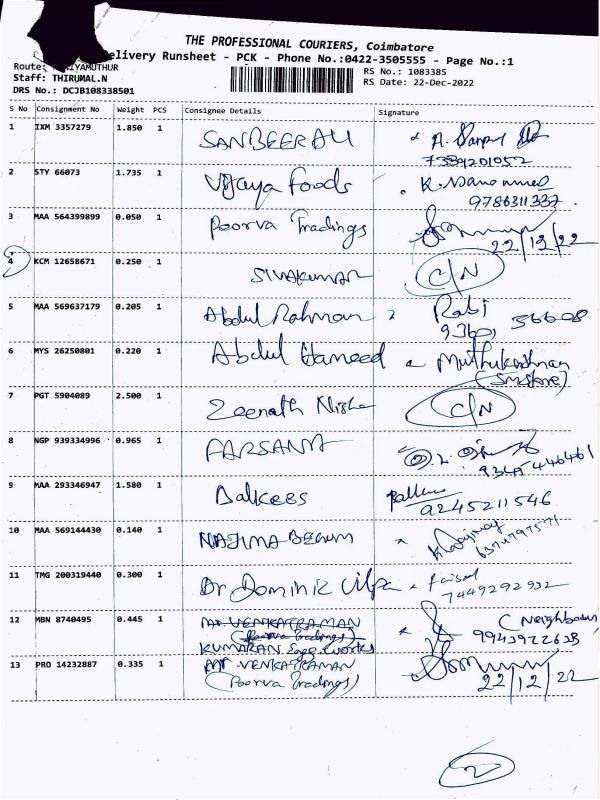 THE PROFESSIONAL COURIERS, Coimbatore
Delivery Runsheet - PCK - Phone No.:0422-3505555 - Page No.:1
Route: YAMUTHUR
Staff: THIRUMAL.N
DRS No.: DCJB108338501
RS No.: 1083385
RS Date: 22-Dec-2022
S No Consignment No Weight PCS Consignee Details Signature
1 IXM 3357279 1.850 1 SANBEERAH
2 STY 66073 1.735 1 Vijaya Foods K.
9786311337
3 MAA 564399899 0.050 1 Poorva Tradings
22/12/22
4 KCM 12658671 0.250 1 SIVAKUMAR C/N
5 MAA 569637179 0.205 1 Abdul Rahman Rabi
9360, 56608
6 MYS 26250801 0.220 1 Abdul Hameed Muthukrishnan
7 PGT 5904089 2.500 1 Zeenath Nisha C/N
8 NGP 939334996 0.965 1 FARSANA
9 MAA 293346947 1.580 1 Balkees
9245211546
10 MAA 569144430 0.140 1 NAJIMA BEGUM
11 TMG 200319440 0.300 1 Dr. Dominic Faisal
7449292932
12 MBN 8740495 0.445 1 Mr. VENKATRAMAN (Neighbour)
(Poorva Tradings)
KUMARAN Engg. Works
13 PRO 14232887 0.335 1 MR VENKATRAMAN
(Poorva Tradings) 22/12/22
2